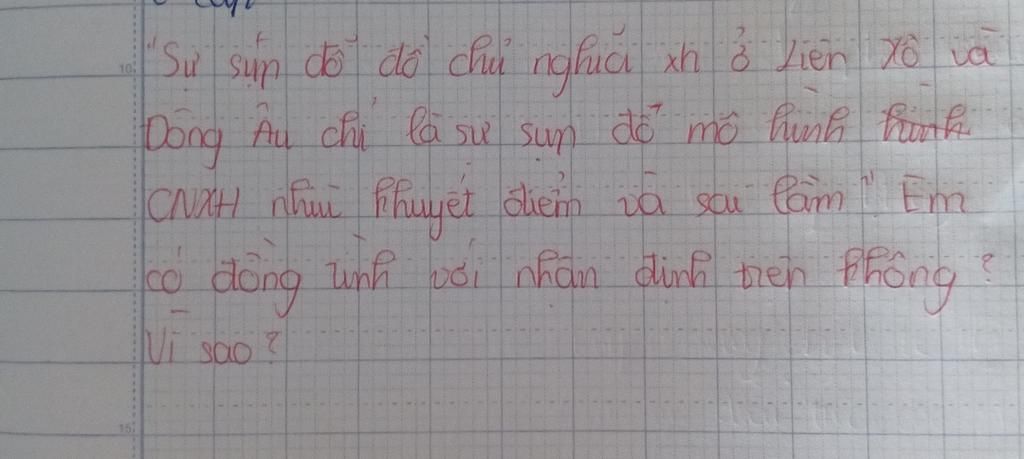 "Sự sụp đổ đổ chủ nghĩa xh ở Liên Xô và
Đông Âu chỉ là sự sụp đổ mô hình hình
CNXH nhiều khuyết điểm và sai lầm" Em
có đồng tình với nhận định trên không?
Vì sao?
10
15